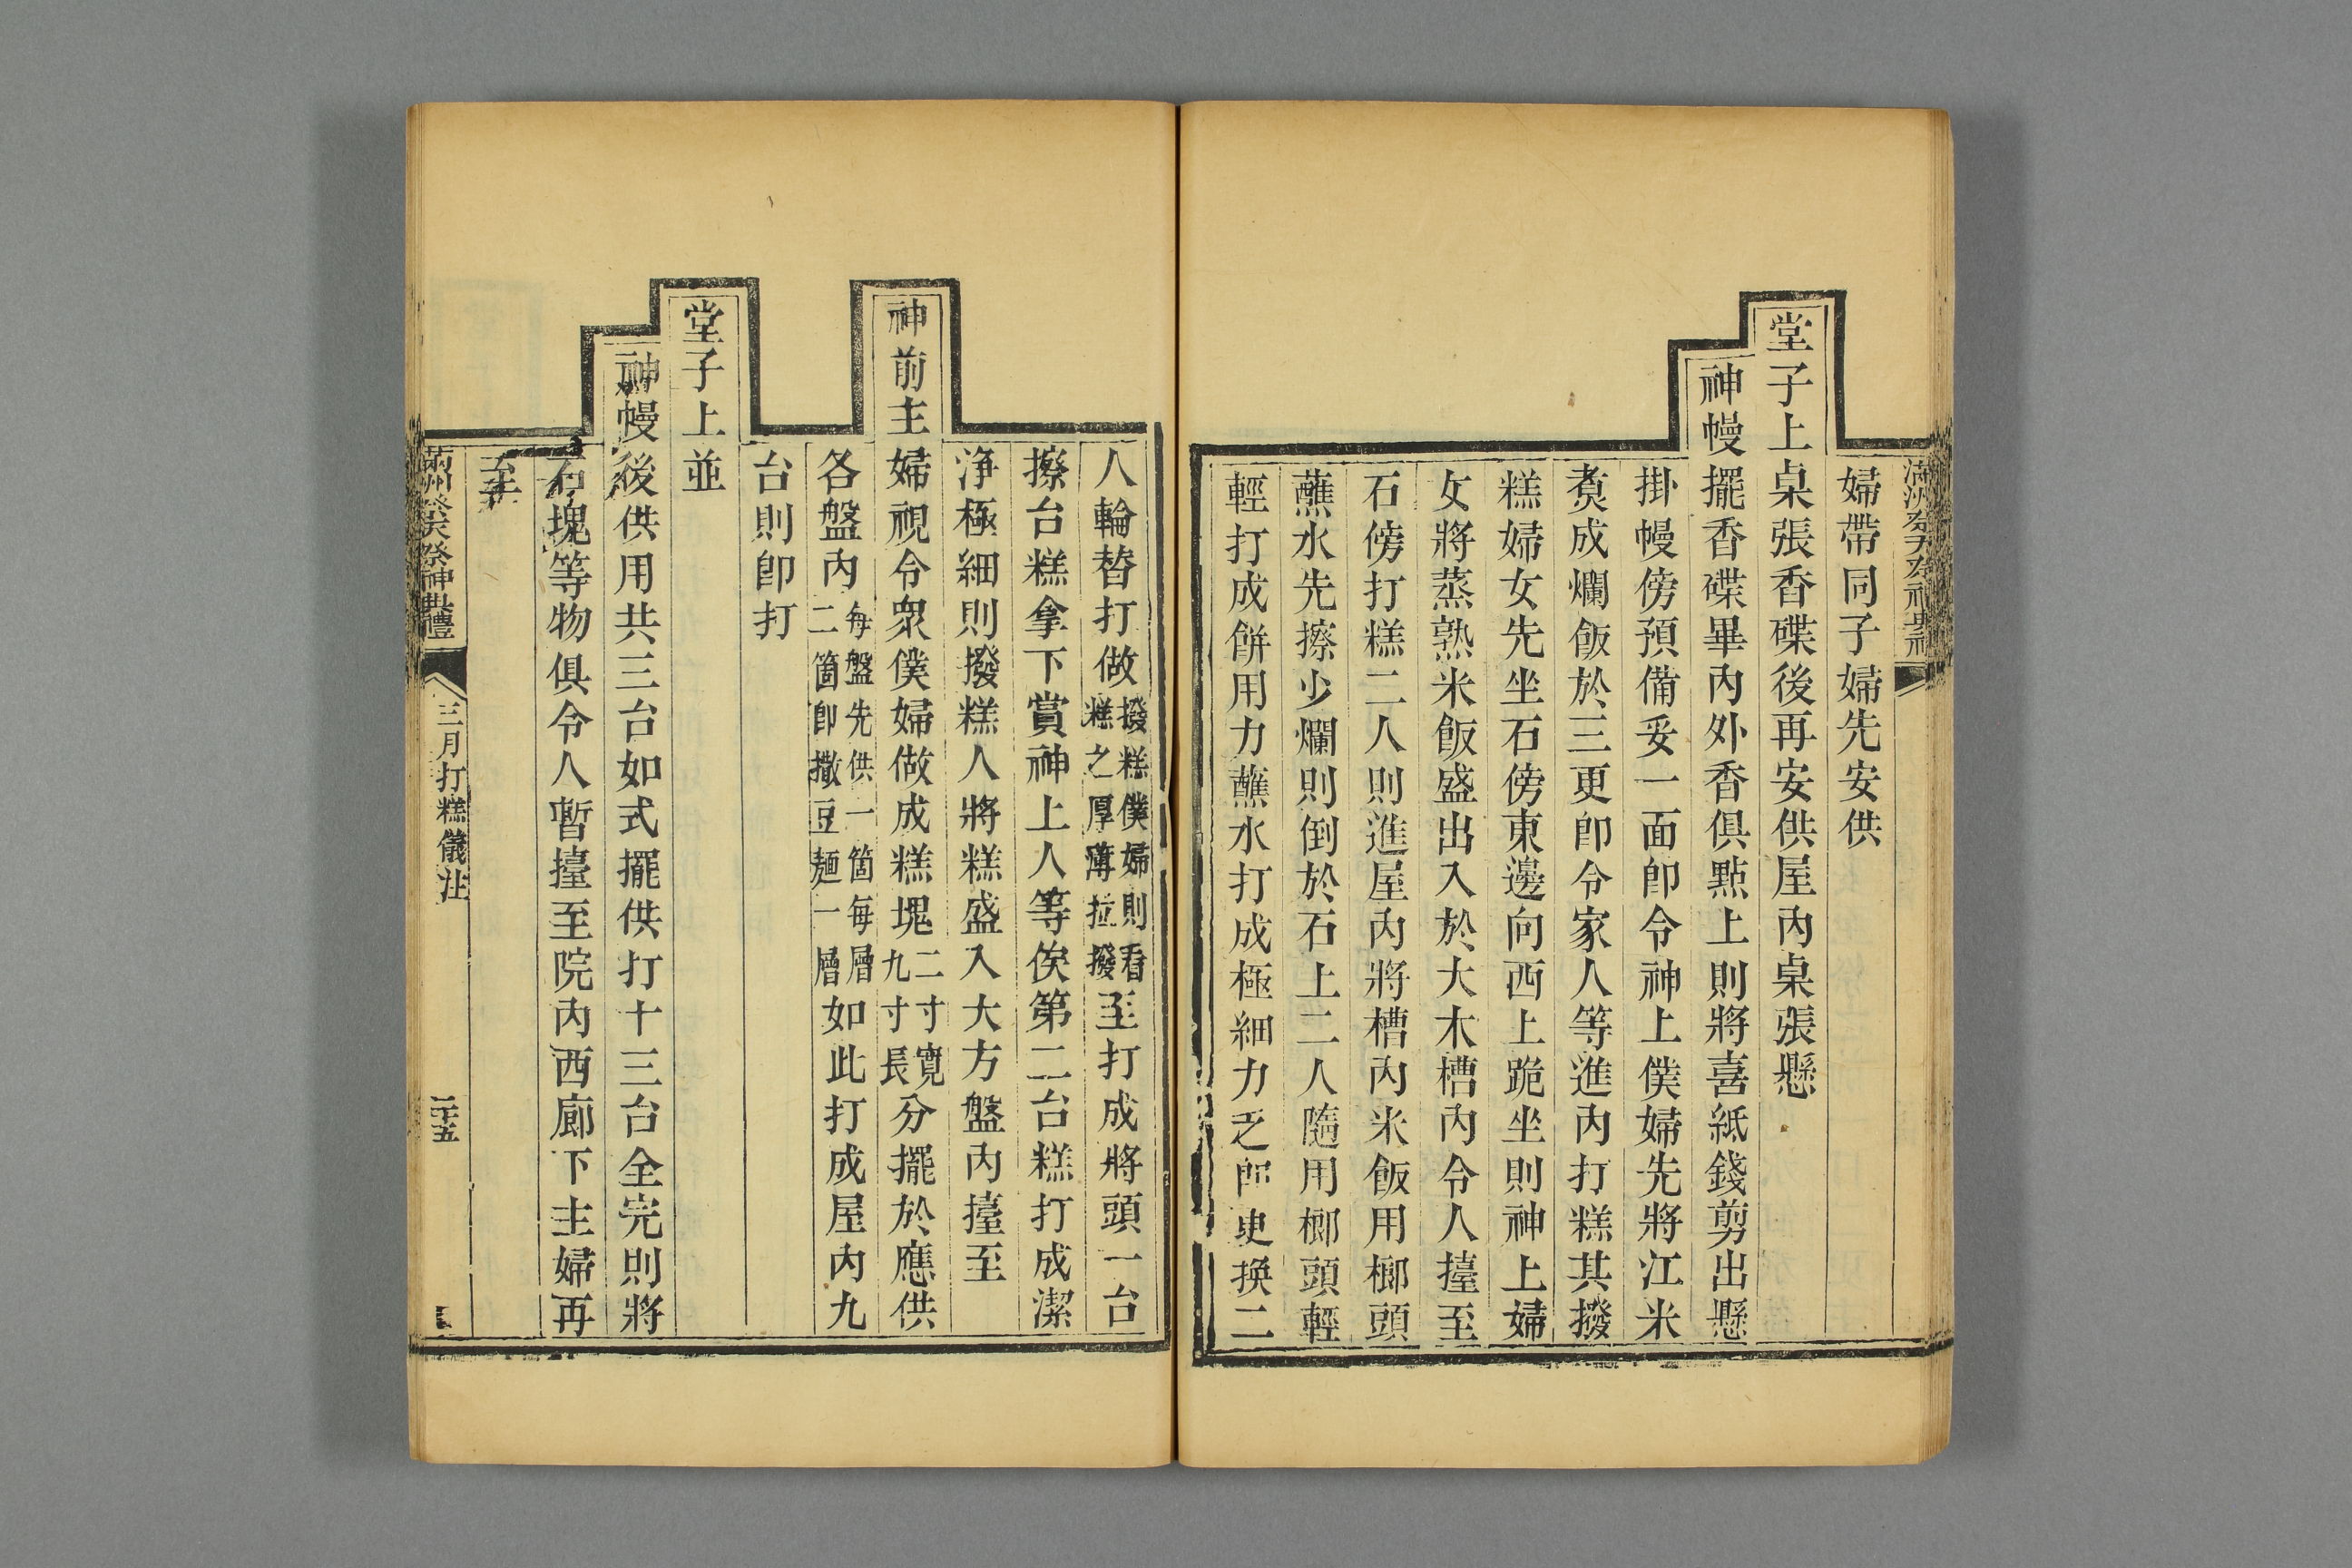 婦帶同子婦先安供
堂子上桌張香碟後再安供屋內桌張懸
神幔擺香碟畢內外香俱點上則將喜紙錢剪出懸
掛幔傍預備妥一面卽令神上僕婦先將江米
煑成爛飯於三更卽令家人等進內打糕其撥
糕婦女先坐石傍東邊向西上跪坐則神上婦
女將蒸熟米飯盛出入於大木槽內令人擡至
石傍打糕二人則進屋內將槽內米飯用榔頭
蘸水先擦少爛則倒於石上二人隨用榔頭輕
輕打成餅用力蘸水打成極細力乏卽更換二
人輪替打做撥糕僕婦則看糕之厚薄拉撥至打成將頭一台
擦台糕拿下賞神上人等俟第二台糕打成潔
淨極細則撥糕人將糕盛入大方盤內擡至
神前主婦視令衆僕婦做成糕塊二寸寬九寸長分擺於應供
各盤內每盤先供一箇每層二箇卽撒豆麵一層如此打成屋內九
台則卽打
堂子上並
神幔後供用共三台如式擺供打十三台全完則將
石塊等物俱令人暫擡至院內西廊下主婦再
至
滿洲祭天祭神典禮 三月打糕儀注 二十五